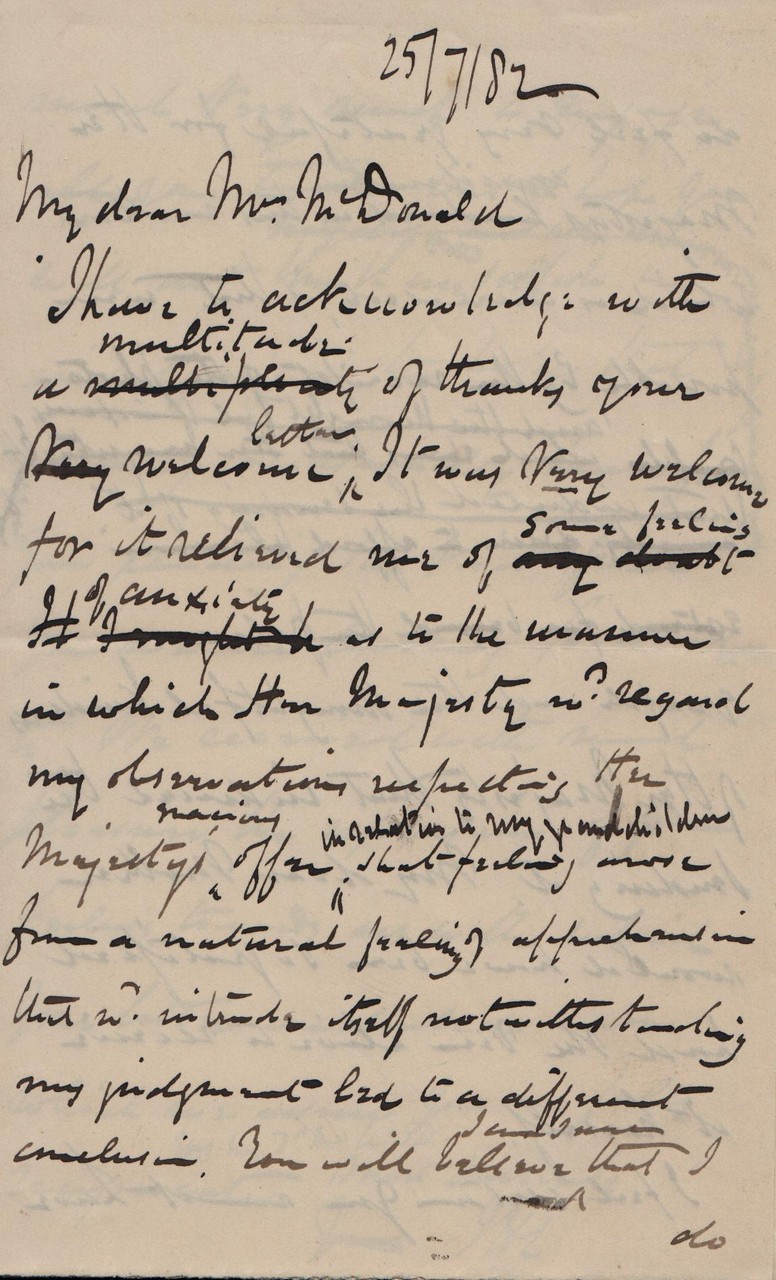 25/7/82
My dear Mrs. McDonald
I have to acknowledge with
multitude
a multiplicity of thanks your
letter
Very welcome, It was Very welcome
some feeling
for it relieved me of any doubt
of anxiety
It I might be as to the manner
in which Her Majesty wd. regard
my observations respecting Her
gracious in relation to my grandchildren
Majestys offer, that feeling arose
from a natural feeling of apprehension
that wd. intrude itself notwithstanding
my judgment led to a different
I am sure
conclusion. You will believe that I
do